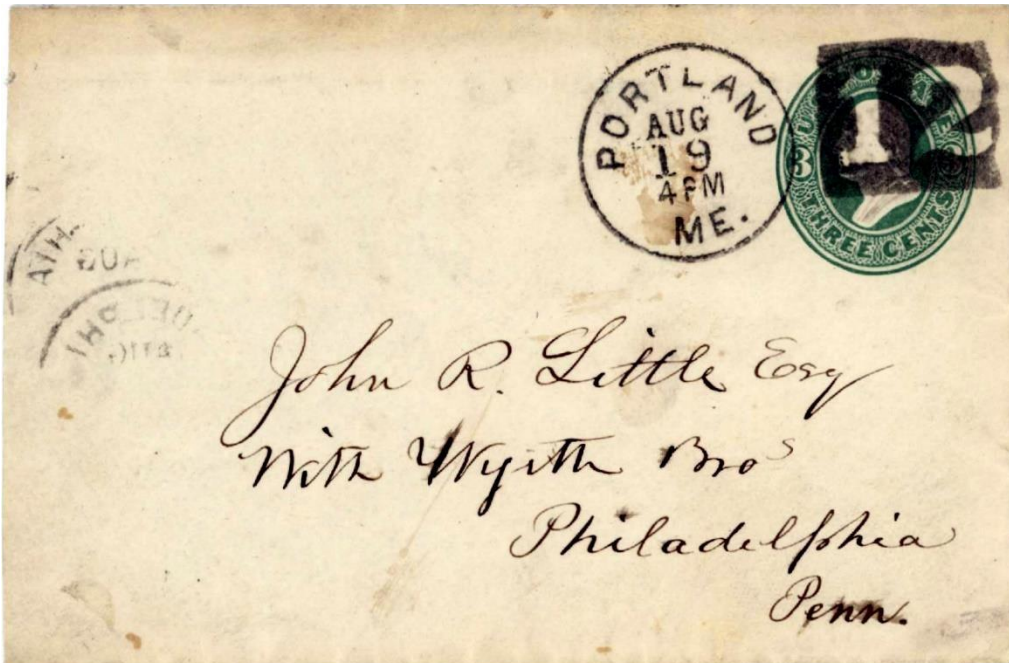 PORTLAND
AUG
19
4PM
ME.
U
3
THREE CENTS
1
John R. Little Esq
With Wyeth Bros
Philadelphia
Penn.